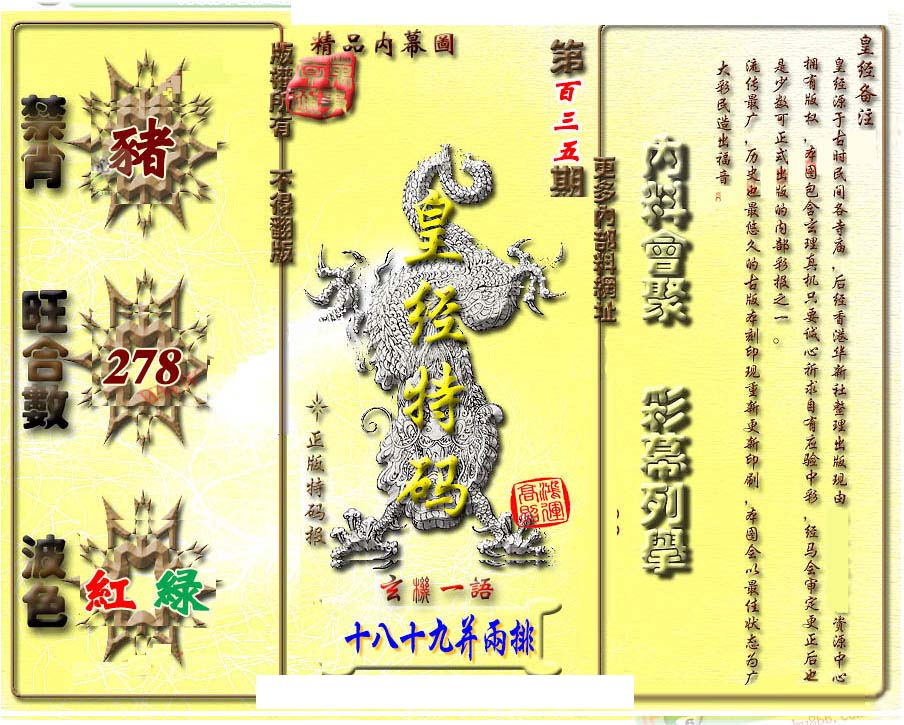 精品內幕圖
第百三五期
版權所有 不得翻版
更多內部料網址
禁肖
豬
旺合數
278
波色
紅 綠
皇经特码
正版特码报
鴻運高照
玄機一語
十八十九并兩排
內料會聚
彩幕列舉
皇经备注
皇经源于古时民间各寺庙，后经香港华新社整理出版现由 资源中心
拥有版权，本图包含玄理真机只要诚心祈求自有应验中彩，经马会审定更正后也
是少数可正式出版的内部彩报之一。
流传最广，历史也最悠久的古版本刻印现重新更新印刷，本图会以最佳状态为广
大彩民造出福音